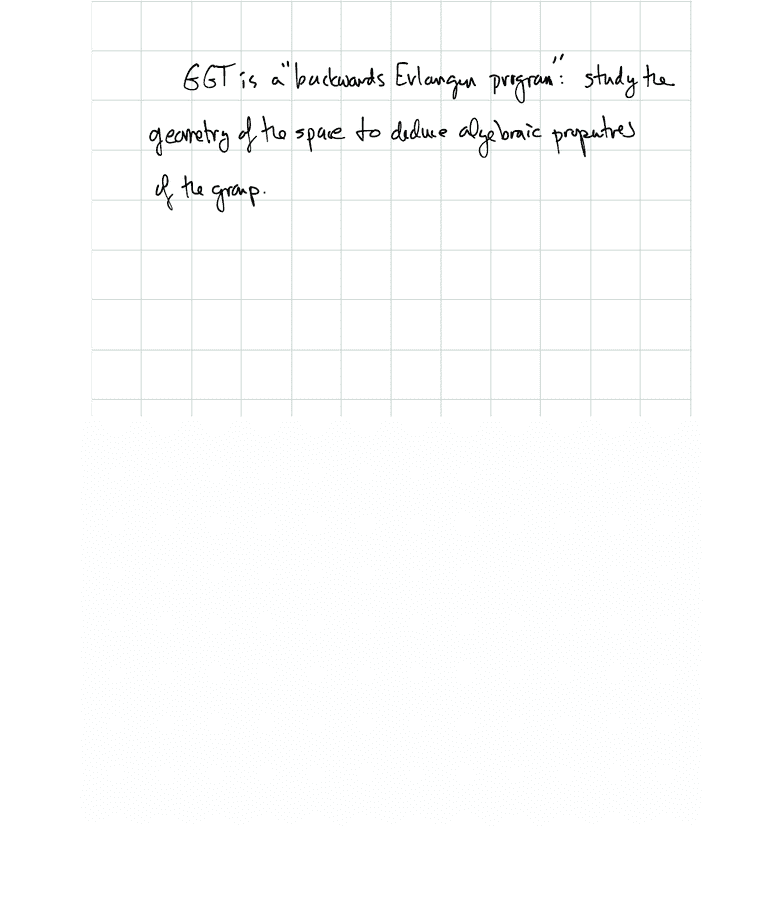 GGT is a "backwards Erlangen program": study the
geometry of the space to deduce algebraic properties
of the group.